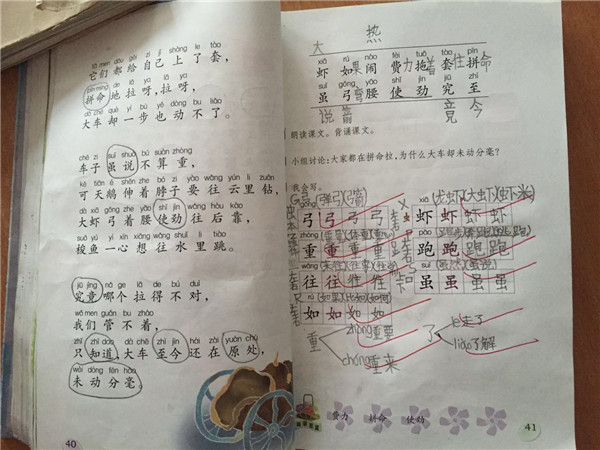 tā men dōu gěi zì jǐ shàng le tào
它们都给自己上了套，
pīn mìng de lā ya lā ya
拼命地拉呀，拉呀，
dà chē què yí bù yě dòng bu liǎo
大车却一步也动不了。
chē zi suī shuō bú suàn zhòng
车子虽说不算重，
kě tiān é shēn zhe bó zi yào wǎng yún li zuān
可天鹅伸着脖子要往云里钻，
dà xiā gōng zhe yāo shǐ jìn wǎng hòu kào
大虾弓着腰使劲往后靠，
suō yú yì xīn xiǎng wǎng shuǐ li tiào
梭鱼一心想往水里跳。
jiū jìng nǎ ge lā de bú duì
究竟哪个拉得不对，
wǒ men guǎn bu zháo
我们管不着，
zhǐ zhī dào dà chē zhì jīn hái zài yuán chù
只知道，大车至今还在原处，
wèi dòng fēn háo
未动分毫。
40
大 热
xiā rú nào fèi tuō tào pīn
虾 如果 闹 费力 拖着 套住 拼命
suī gōng yāo shǐ jìn jiū zhì
虽 弓弯 腰 使 劲 究 至
说 箭 竟 今
朗读课文。背诵课文。
小组讨论：大家都在拼命拉，为什么大车却未动分毫？
我会写。
gōng (弹弓)(弓箭) xiā (龙虾)(大虾)(虾米)
弓 弓 弓 弓 虾 虾 虾 虾
zhòng pǎo
重 重 重 重 跑 跑 跑 跑
wǎng suī (虽然)(虽说)
往 往 往 往 虽 虽 虽 虽
rú (如果)(比如)(如何)
如 如 如 如
重 zhòng 重要 了 le 走了
chóng 重来 liǎo 了解
费力 拼命 使劲
41